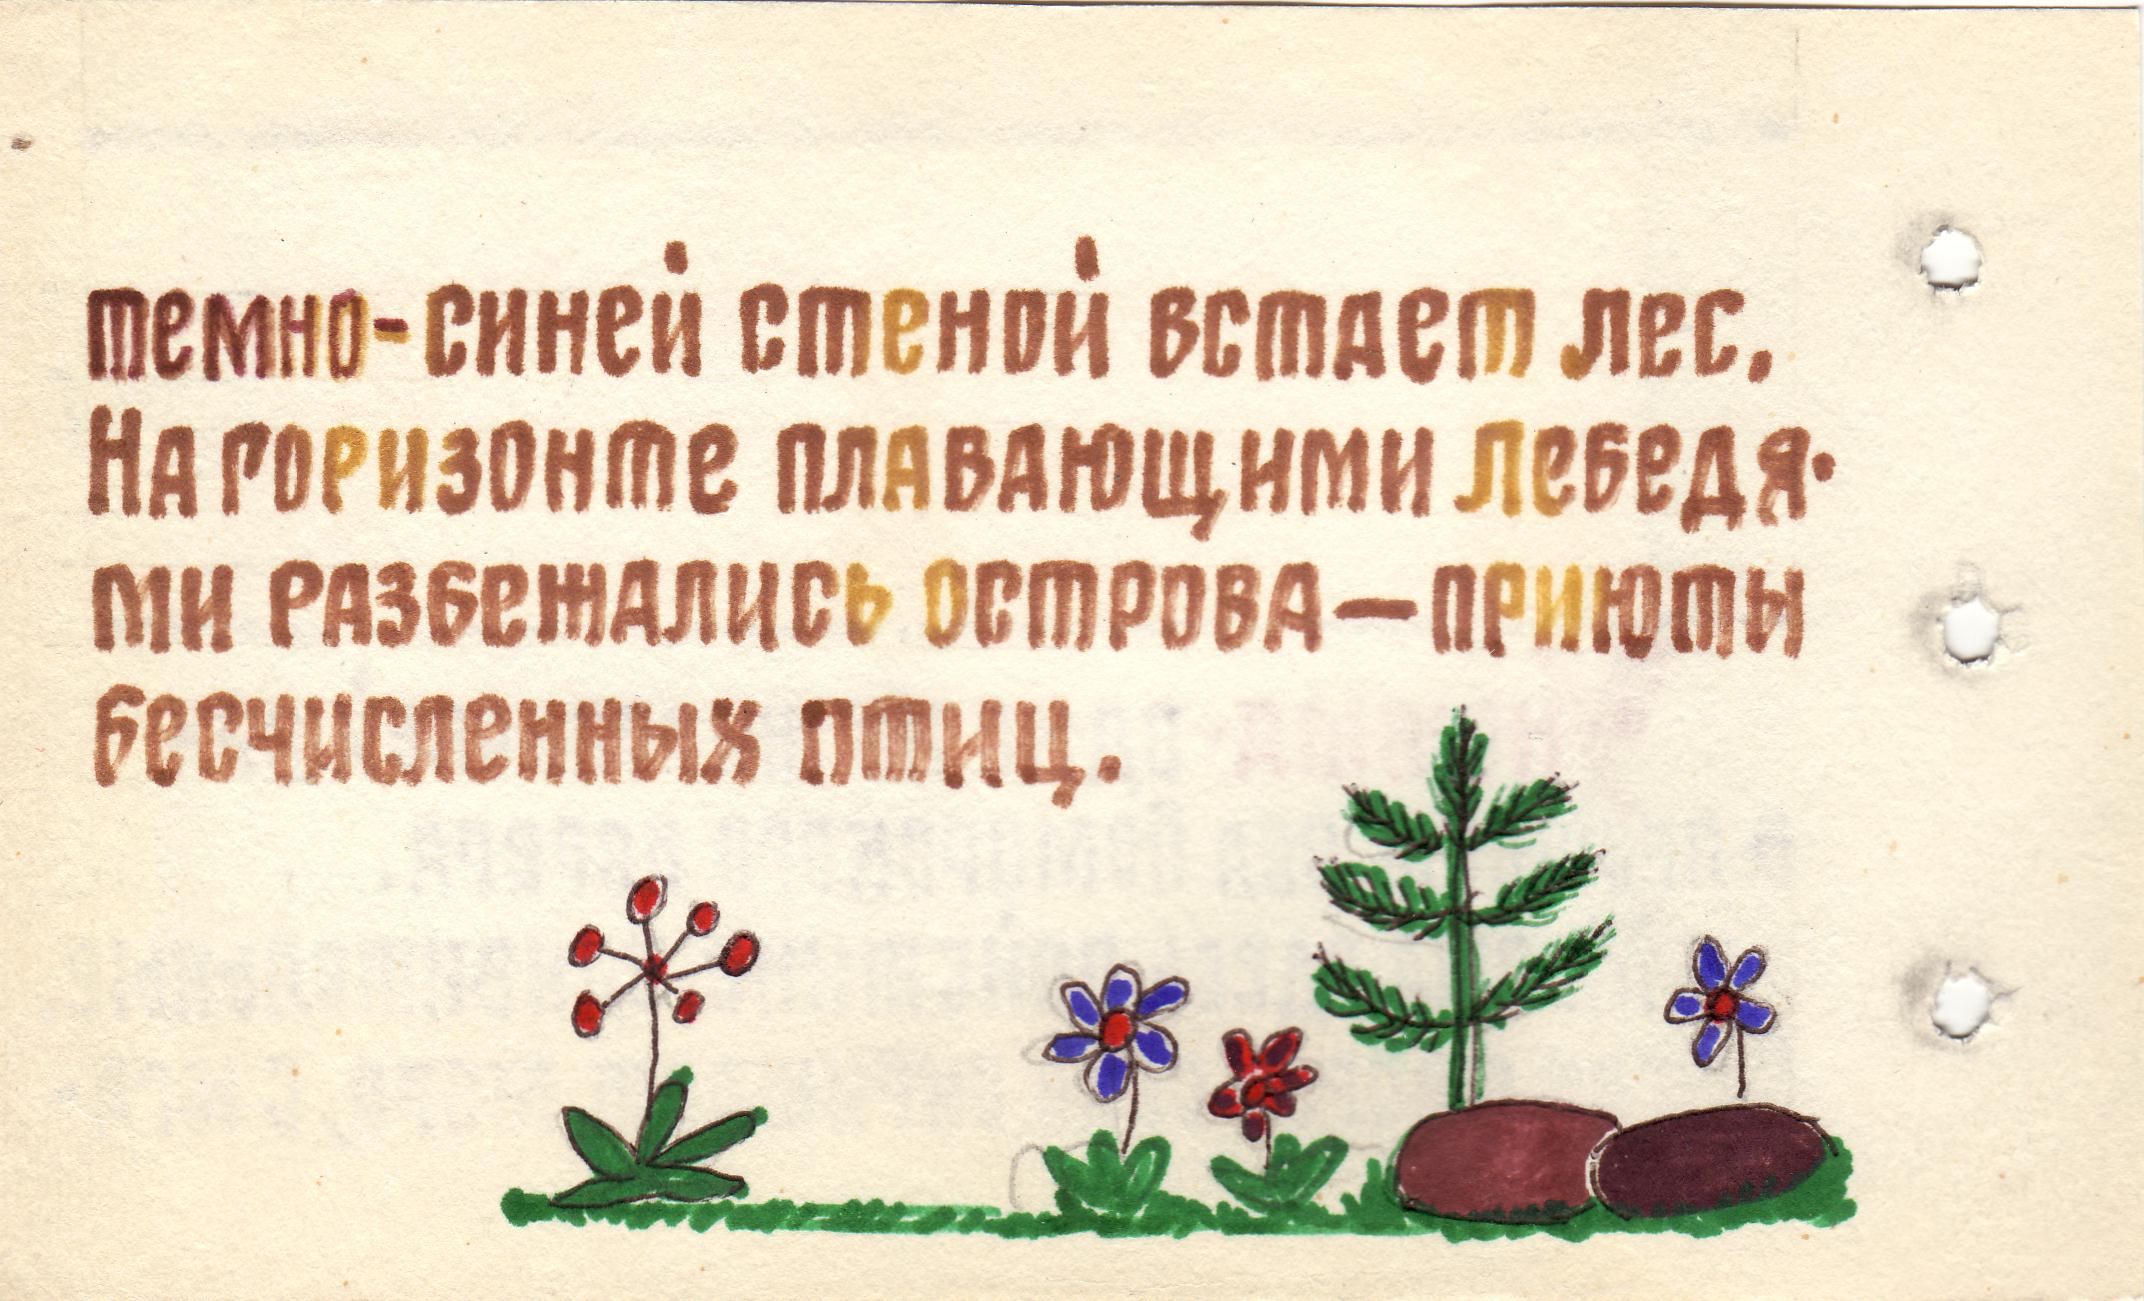 темно-синей стеной встает лес.
На горизонте плавающими лебедя-
ми разбежались острова — приюты
бесчисленных птиц.